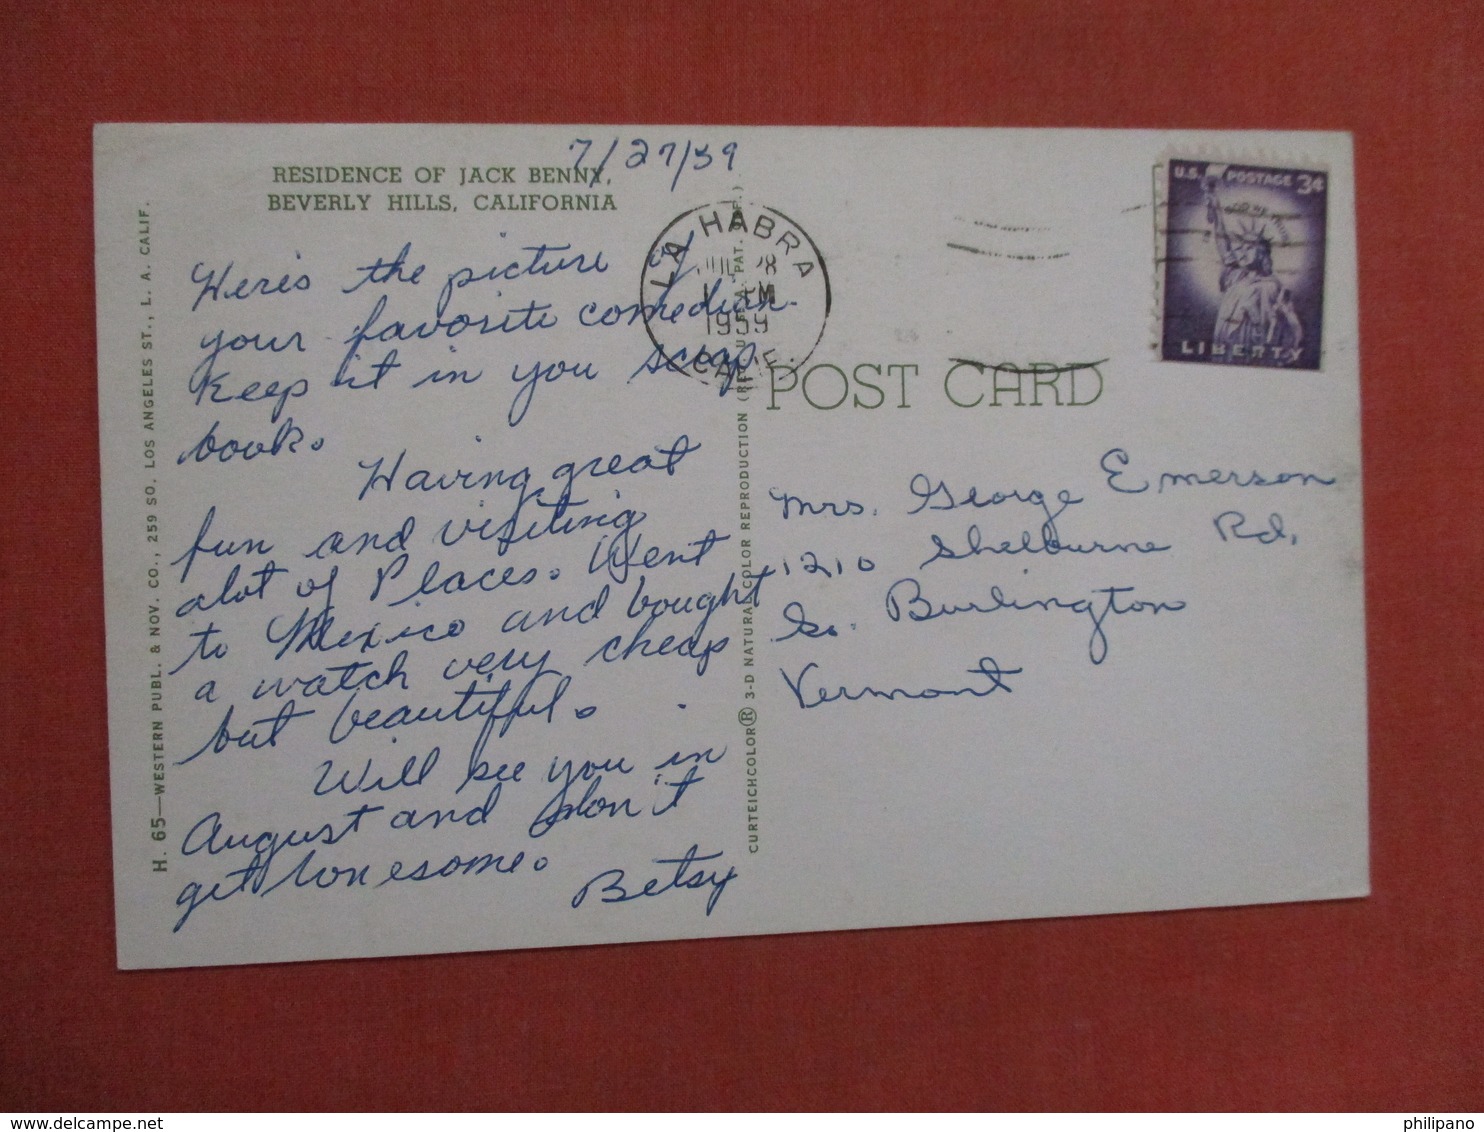 7/27/59
RESIDENCE OF JACK BENNY,
BEVERLY HILLS, CALIFORNIA
Here's the picture of
your favorite comedian.
Keep it in you scrap
book.
Having great
fun and visiting
alot of Places. Went
to Mexico and bought
a watch very cheap
but beautiful.
Will see you in
August and don't
get lonesome.
Betsy
H. 65—WESTERN PUBL. & NOV. CO., 259 SO. LOS ANGELES ST., L. A. CALIF.
CURTEICHCOLOR® 3-D NATURAL COLOR REPRODUCTION (REG. U. S. A. PAT. OFF.)
LA HABRA
JUL 28
1959
CALIF.
U.S. POSTAGE 3¢
IN GOD WE TRUST
LIBERTY
POST CARD
Mrs. George Emerson
1210 Shelburne Rd.
So. Burlington
Vermont
philipano
delcampe.net